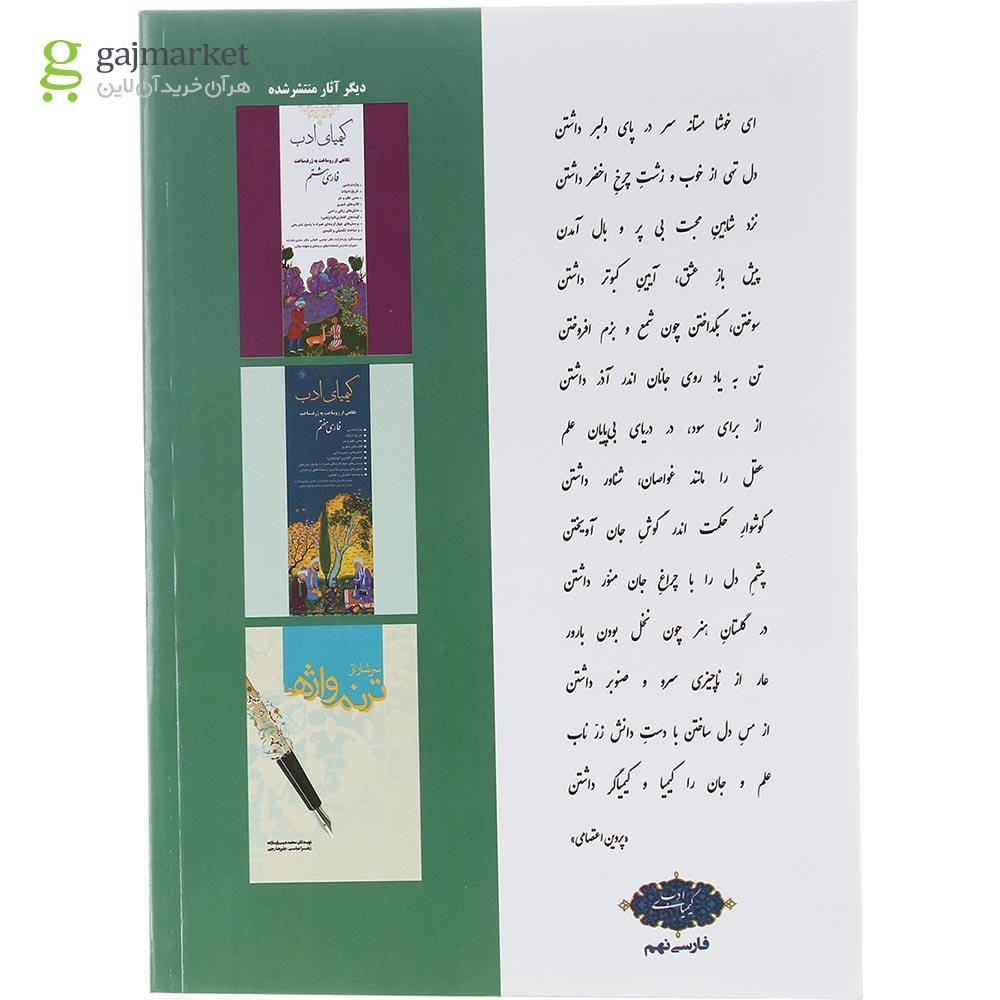 gajmarket
هر آن خرید آن لاین
دیگر آثار منتشر شده
کیمیای ادب
نگاهی از روساخت به ژرف‌ساخت
فارسی هشتم
واژه‌شناسی
تاریخ ادبیات
معنی نظم و نثر
قالب‌های شعری
دانش‌های زبانی و ادبی
کیمیای ادب
نگاهی از روساخت به ژرف‌ساخت
فارسی هفتم
سرشار از
ترنم واژه‌ها
ای خوشا مستانه سر در پای دلبر داشتن
دل تهی از خوب و زشتِ چرخِ اخضر داشتن
نزد شاهینِ محبت بی پر و بال آمدن
پیش بازِ عشق، آیینِ کبوتر داشتن
سوختن، بگداختن چون شمع و بزم افروختن
تن به یاد روی جانان اندر آذر داشتن
از برای سود، در دریای بی‌پایان علم
عقل را مانند غواصان، شناور داشتن
گوشوارِ حکمت اندر گوشِ جان آویختن
چشمِ دل را با چراغِ جان منوّر داشتن
در گلستانِ هنر چون نخل بودن بارور
عار از ناچیزی سرو و صنوبر داشتن
از مسِ دل ساختن با دستِ دانش زرّ ناب
علم و جان را کیمیا و کیمیاگر داشتن
«پروین اعتصامی»
کیمیای ادب
فارسی نهم